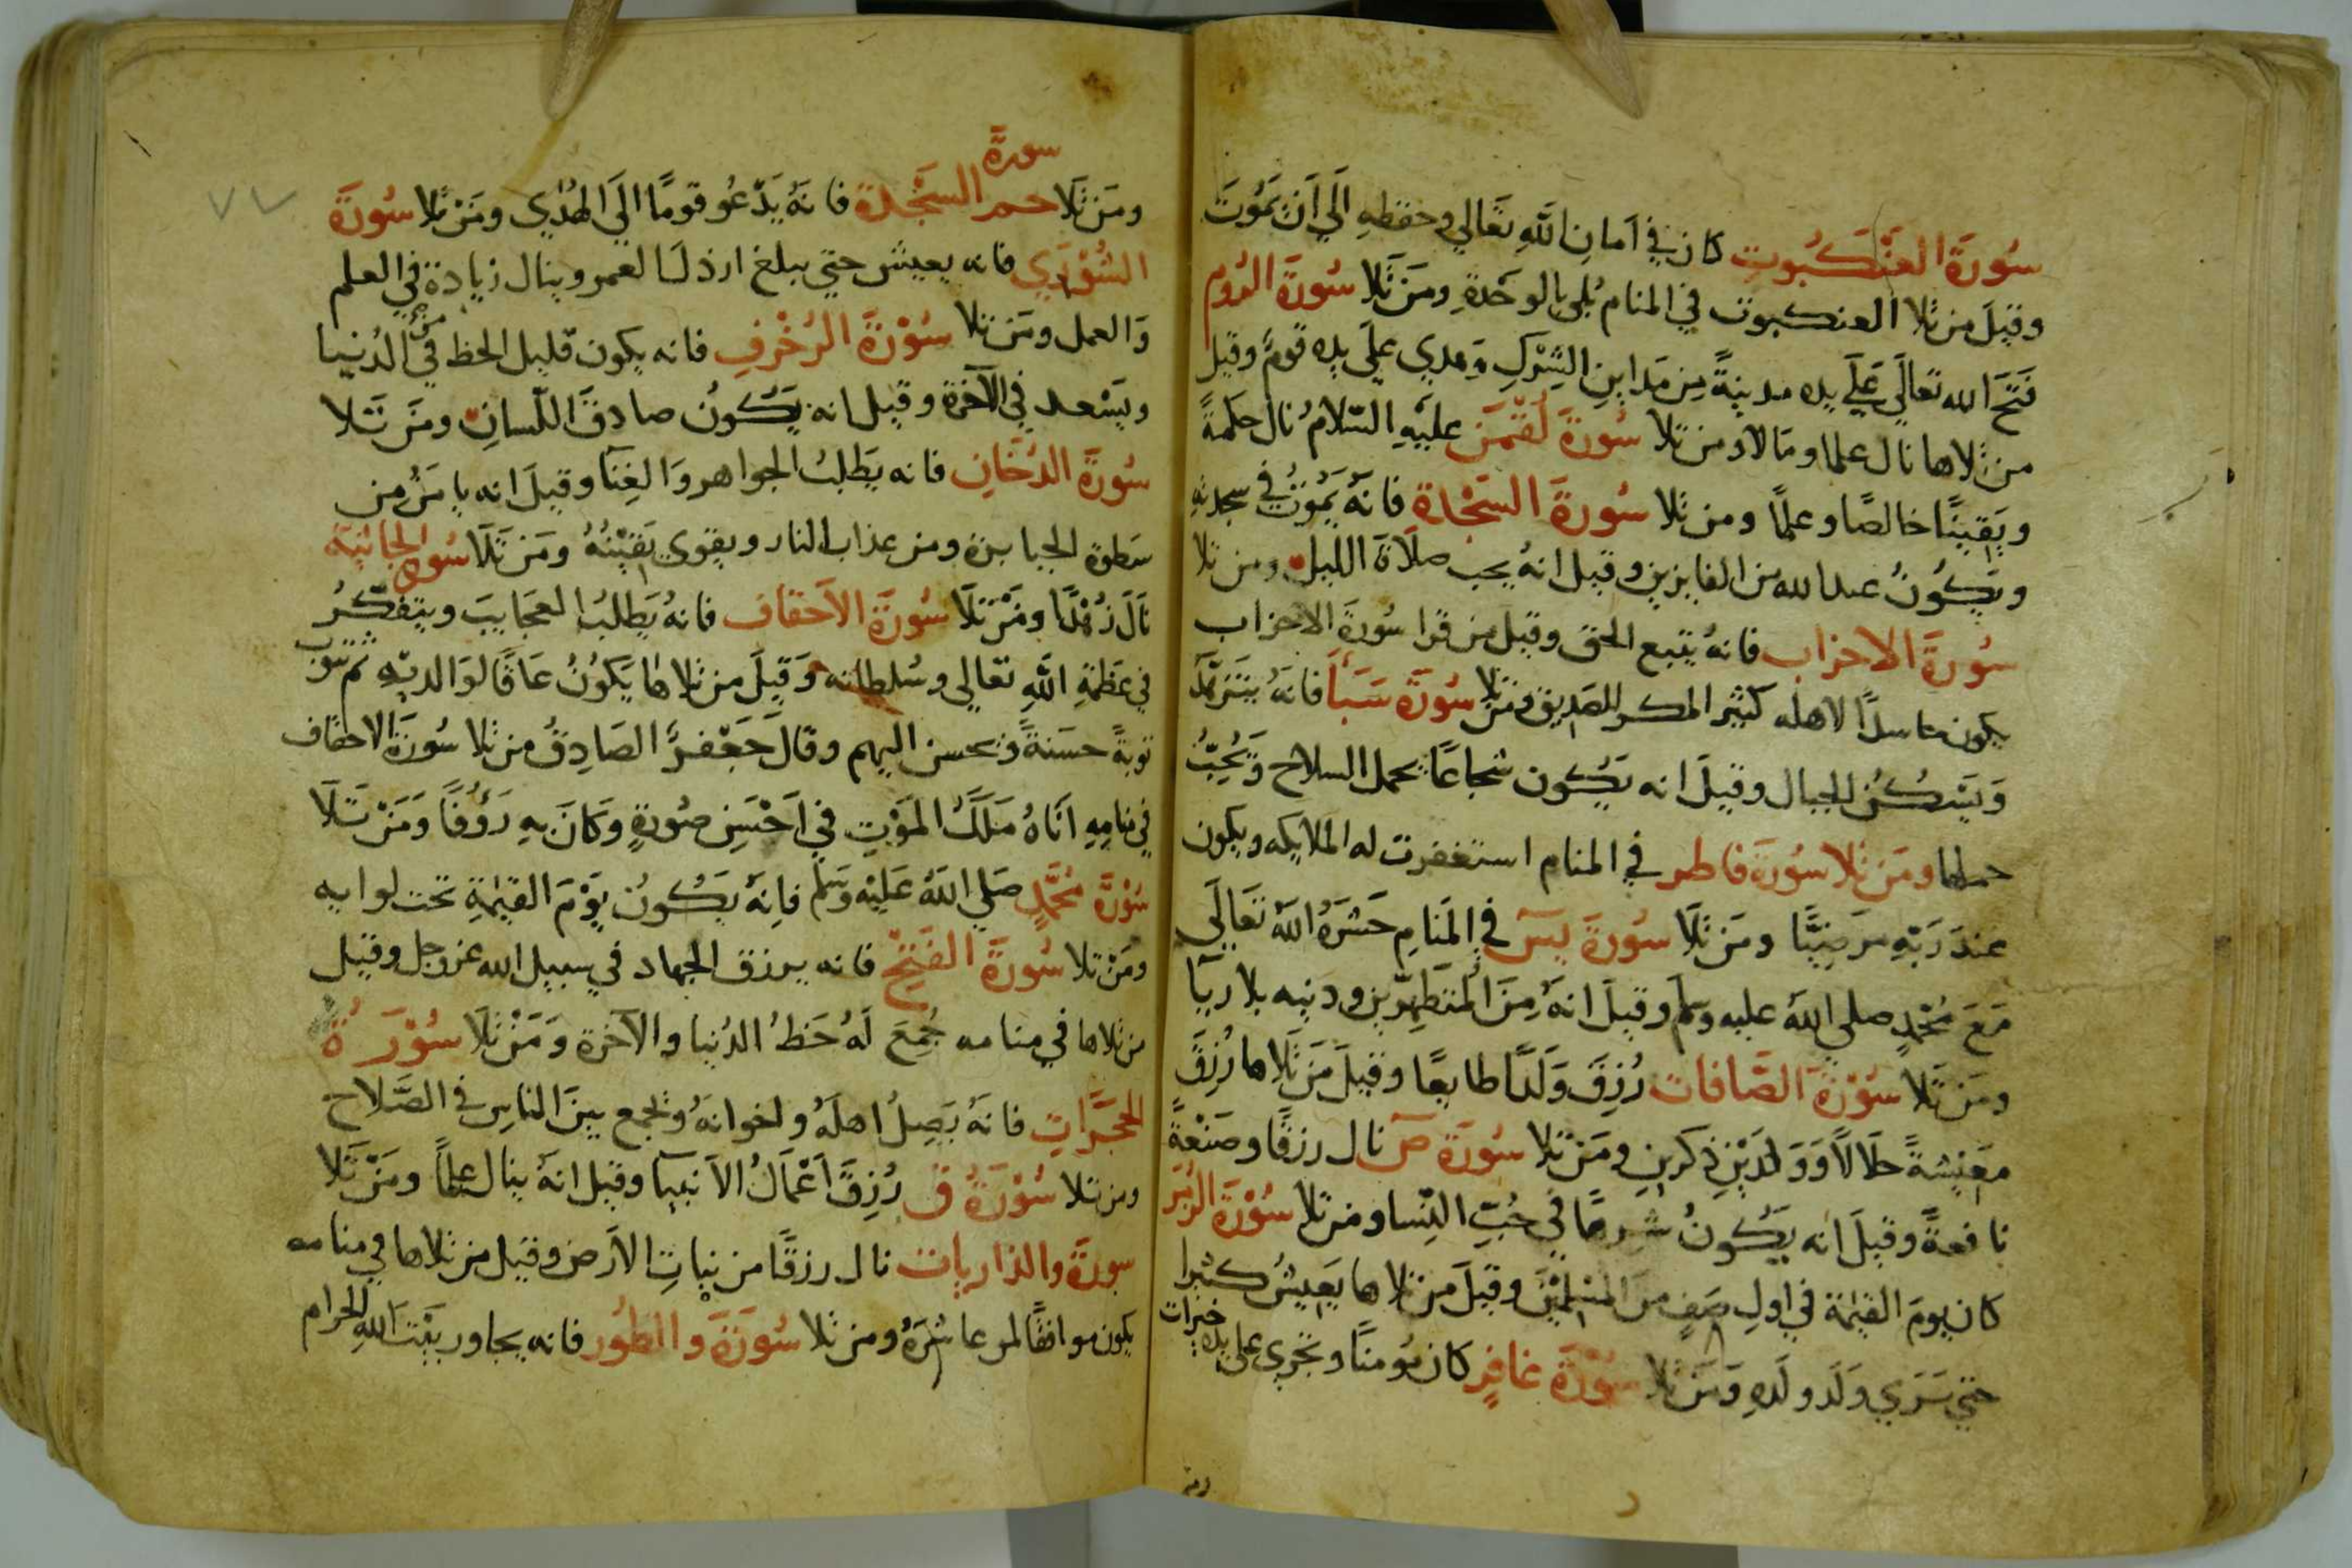 سُورَةَ العَنْكَبُوتِ كان في اَمانِ اللّهِ تعَالي وحفظهِ اِلَي اَن يَمُوتَ
وقيلَ من تلا العنكبوت في المنام بُلي بالوحدةِ ومَن تَلا سُورَةَ الرُوم
فَتَحَ الله تعالَي عَلَي يده مدينةً مِن مَداينِ الشِركِ وَهدي علَي يده قومٌ وقيل
من تلاها نال علما ومَالا ومن تلا سُورةَ لُقْمَن عليهِ السّلامُ نال حكمةً
ويَقينًا خالصًا وعلمًا ومن تلا سُورةَ السَجْدة فانهُ يَمُوتُ في سجدتهِ
ويَكُونُ عند الله من الفايزين وقيل انهُ يحب صلاَةَ الليل ومن تلا
سُورَةَ الاحزاب فانهُ يتبع الحق وقيل من قرا سُورَةَ الاحزاب
يكون حاسدًا لاهله كثير المكر للصديق ومَن تلا سُورَةَ سَبَأ فانهُ يَتَزهّد
وَيَسْكُن الجبال وقيلَ انه يَكُون شجاعًا يحمل السلاح وَيُحِبُّ
حملها ومَن تلا سُورَةَ فاطر في المنام استغفرت له الملايكه ويكون
عندَ رَبّهِ مَرضِيًّا ومَن تَلَا سُورةَ يسَ في المَنامِ حَشَرَهُ اللّهُ تَعَالَي
مَعَ مُحَمّدٍ صلي اللّهُ عليه وسلم وقيلَ انهُ مِنَ المُتَطَهِّرين ودينه بلا ريآ
ومَن تَلا سُوْرَةَ الصَّافات رُزِقَ وَلَدًا طايعًا وقيلَ مَن تَلاها رُزِقَ
معَيْشةً حلَالاً وَوَلدَيْنِ ذكَرينِ ومَن تلا سُورَةَ صَ نال رزقًا وصَنْعةً
نافعةً وقيلَ انه يَكُونُ شرهًا في حُبِّ النِسا ومن تلا سُوْرَةَ الزُمَر
كان يومَ القيٰمة في اولِ صَفٍ منَ المسلمْينَ وقيلَ من تلاها يَعيشُ كثيرا
حتي يَرَي وَلَد ولَدِهِ ومَن تلا سُوْرَةَ غافرٍ كان مُومنًا وتجري علي يده خيرات
ومَن تَلَا سورة حم السَجْدة فانهُ يَدْعُو قومًا الَي الهُدٰي ومَنْ تلا سُورَةَ
الشُوْرَي فانه يعيش حتي يبلغ ارذلَ العمر وينال زيادة في العلم
وَالعمل ومَن تلا سُوْرَةَ الزُخْرفِ فانه يكون قليل الحظ في الدُنيا
ويَسْعد في الآخرة وقيل انه يَكُونُ صادقَ اللّسانِ ومَن تَلا
سُورَةَ الدُخَانِ فانه يَطلبُ الجواهر وَالغِنَآ وقيلَ انه يامَنُ من
سَطوة الجبابرة ومن عذاب النار ويقوي يَقيْنُهُ ومَن تَلَا سُورة الجاثيَة
نَالَ زُهْدًا ومَنْ تَلَا سُورَةَ الاَحقاف فانهُ يَطلبُ العجَايبَ ويتفكّرُ
في عَظمَةِ اللّهِ تعالي وسُلطانه وَقيلَ من تلاها يَكُونُ عَاقًا لوَالديْهِ ثم يتوب
توبةً حسَنةً ويحسن اليهم وقالَ جَعْفرٌ الصَادِقُ من تلا سُورَةَ الاحقاف
في منامِهِ اَتَاهُ مَلَكُ المَوْتِ في اَحْسَنِ صُورَةٍ وَكانَ بهِ رَؤُفًا وَمَنْ تَلَا
سُوْرَةَ مُحَمَّدٍ صَلي اللّهُ عَلَيْه وَسَلم فاِنّهُ يَكُونُ يَوْمَ القيٰمَةِ تحت لوايه
ومَنْ تلا سُورَةَ الفَتْحِ فانه يرزق الجهاد في سبيل الله عز وجل وقيل
من تلاها في منامه جُمِعَ لَهُ حَظُ الدُنيا والآخرة وَمَنْ تَلَا سُوْرَةُ
الحجَرَاتِ فانهُ يَصِلُ اهلَهُ واخوانهُ ويجمع بينَ الناسِ في الصَّلاح
ومن تلا سُوْرَةُ ق رُزِقَ اَعْمَالَ الاَنبيآ وقيل انهُ ينال علمًا ومَنْ تَلا
سورَةَ والذاريات نال رزقًا من نباتِ الاَرض وقيل من تلاها في منامه
يكون موافقًا لمن عاشرَهُ ومن تلا سُورَةَ والطُور فانه يجاور بَيْتَ اللهِ الحرام